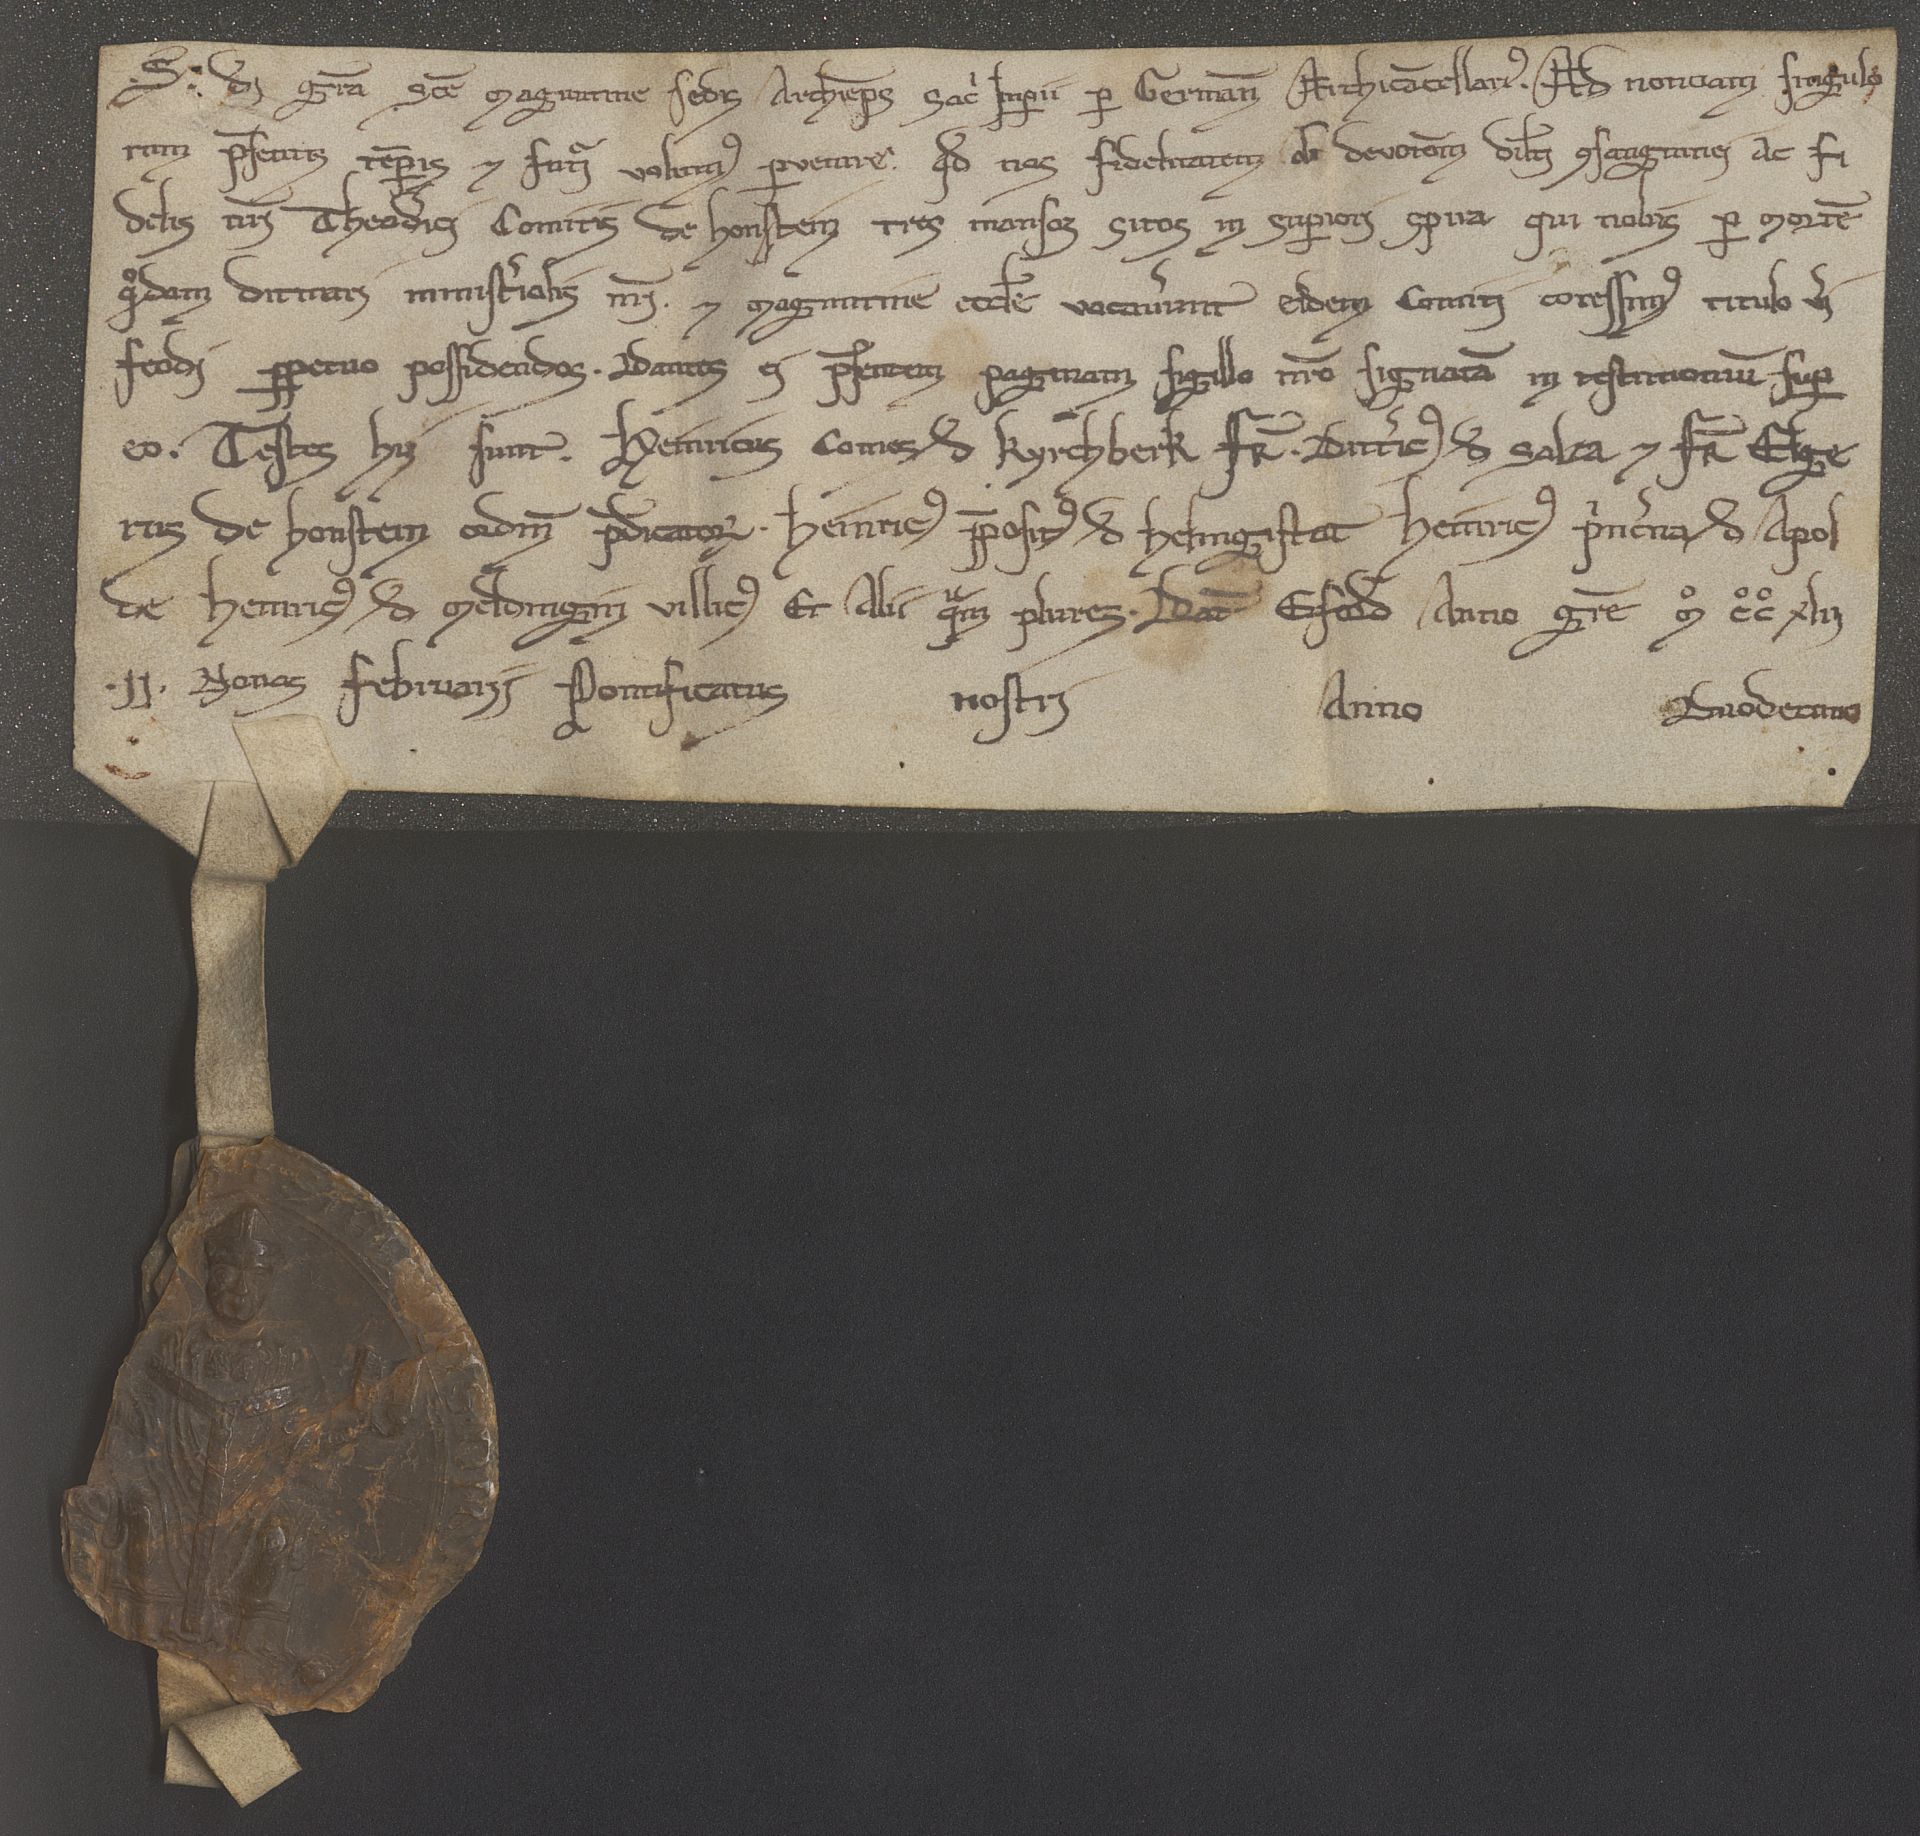 .S. di gra sce maguntine sedis Archieps sac Imperii p German Archicacellari9. Ad noticiam singulo
rum psentis tepis ⁊ futi volum9 pvenire. qd nos fidelitatem ob devotom dilti 9sanguinei ac fi
delis nri Theoderici Comitis de honstein tres mansos sitos in superiori spira qui nobis p morte
q°dam ditmari minist'ialis nri. ⁊ maguntine eccle vacaverunt eidem Comiti concessim9 titulo
feodi ppetuo possidendos. Dantes ei psentem paginam sigillo nro signata in testimonium sup
eo. Testes hij sunt. Heinricus Comes d kyrchberk Fr. Ditric9 d salza ⁊ Fr Elge
rus de honstein ordin pdicator. Heinric9 pposit9 d heligistat Heinric9 pinc'na d Apol
de Heinric9 d meldingin villic9 Et Alii qam plures. Dat Erford Anno gre m° c°c° xlii
.II. Nonas Februarij Pontificatus nostri Anno Duodecimo